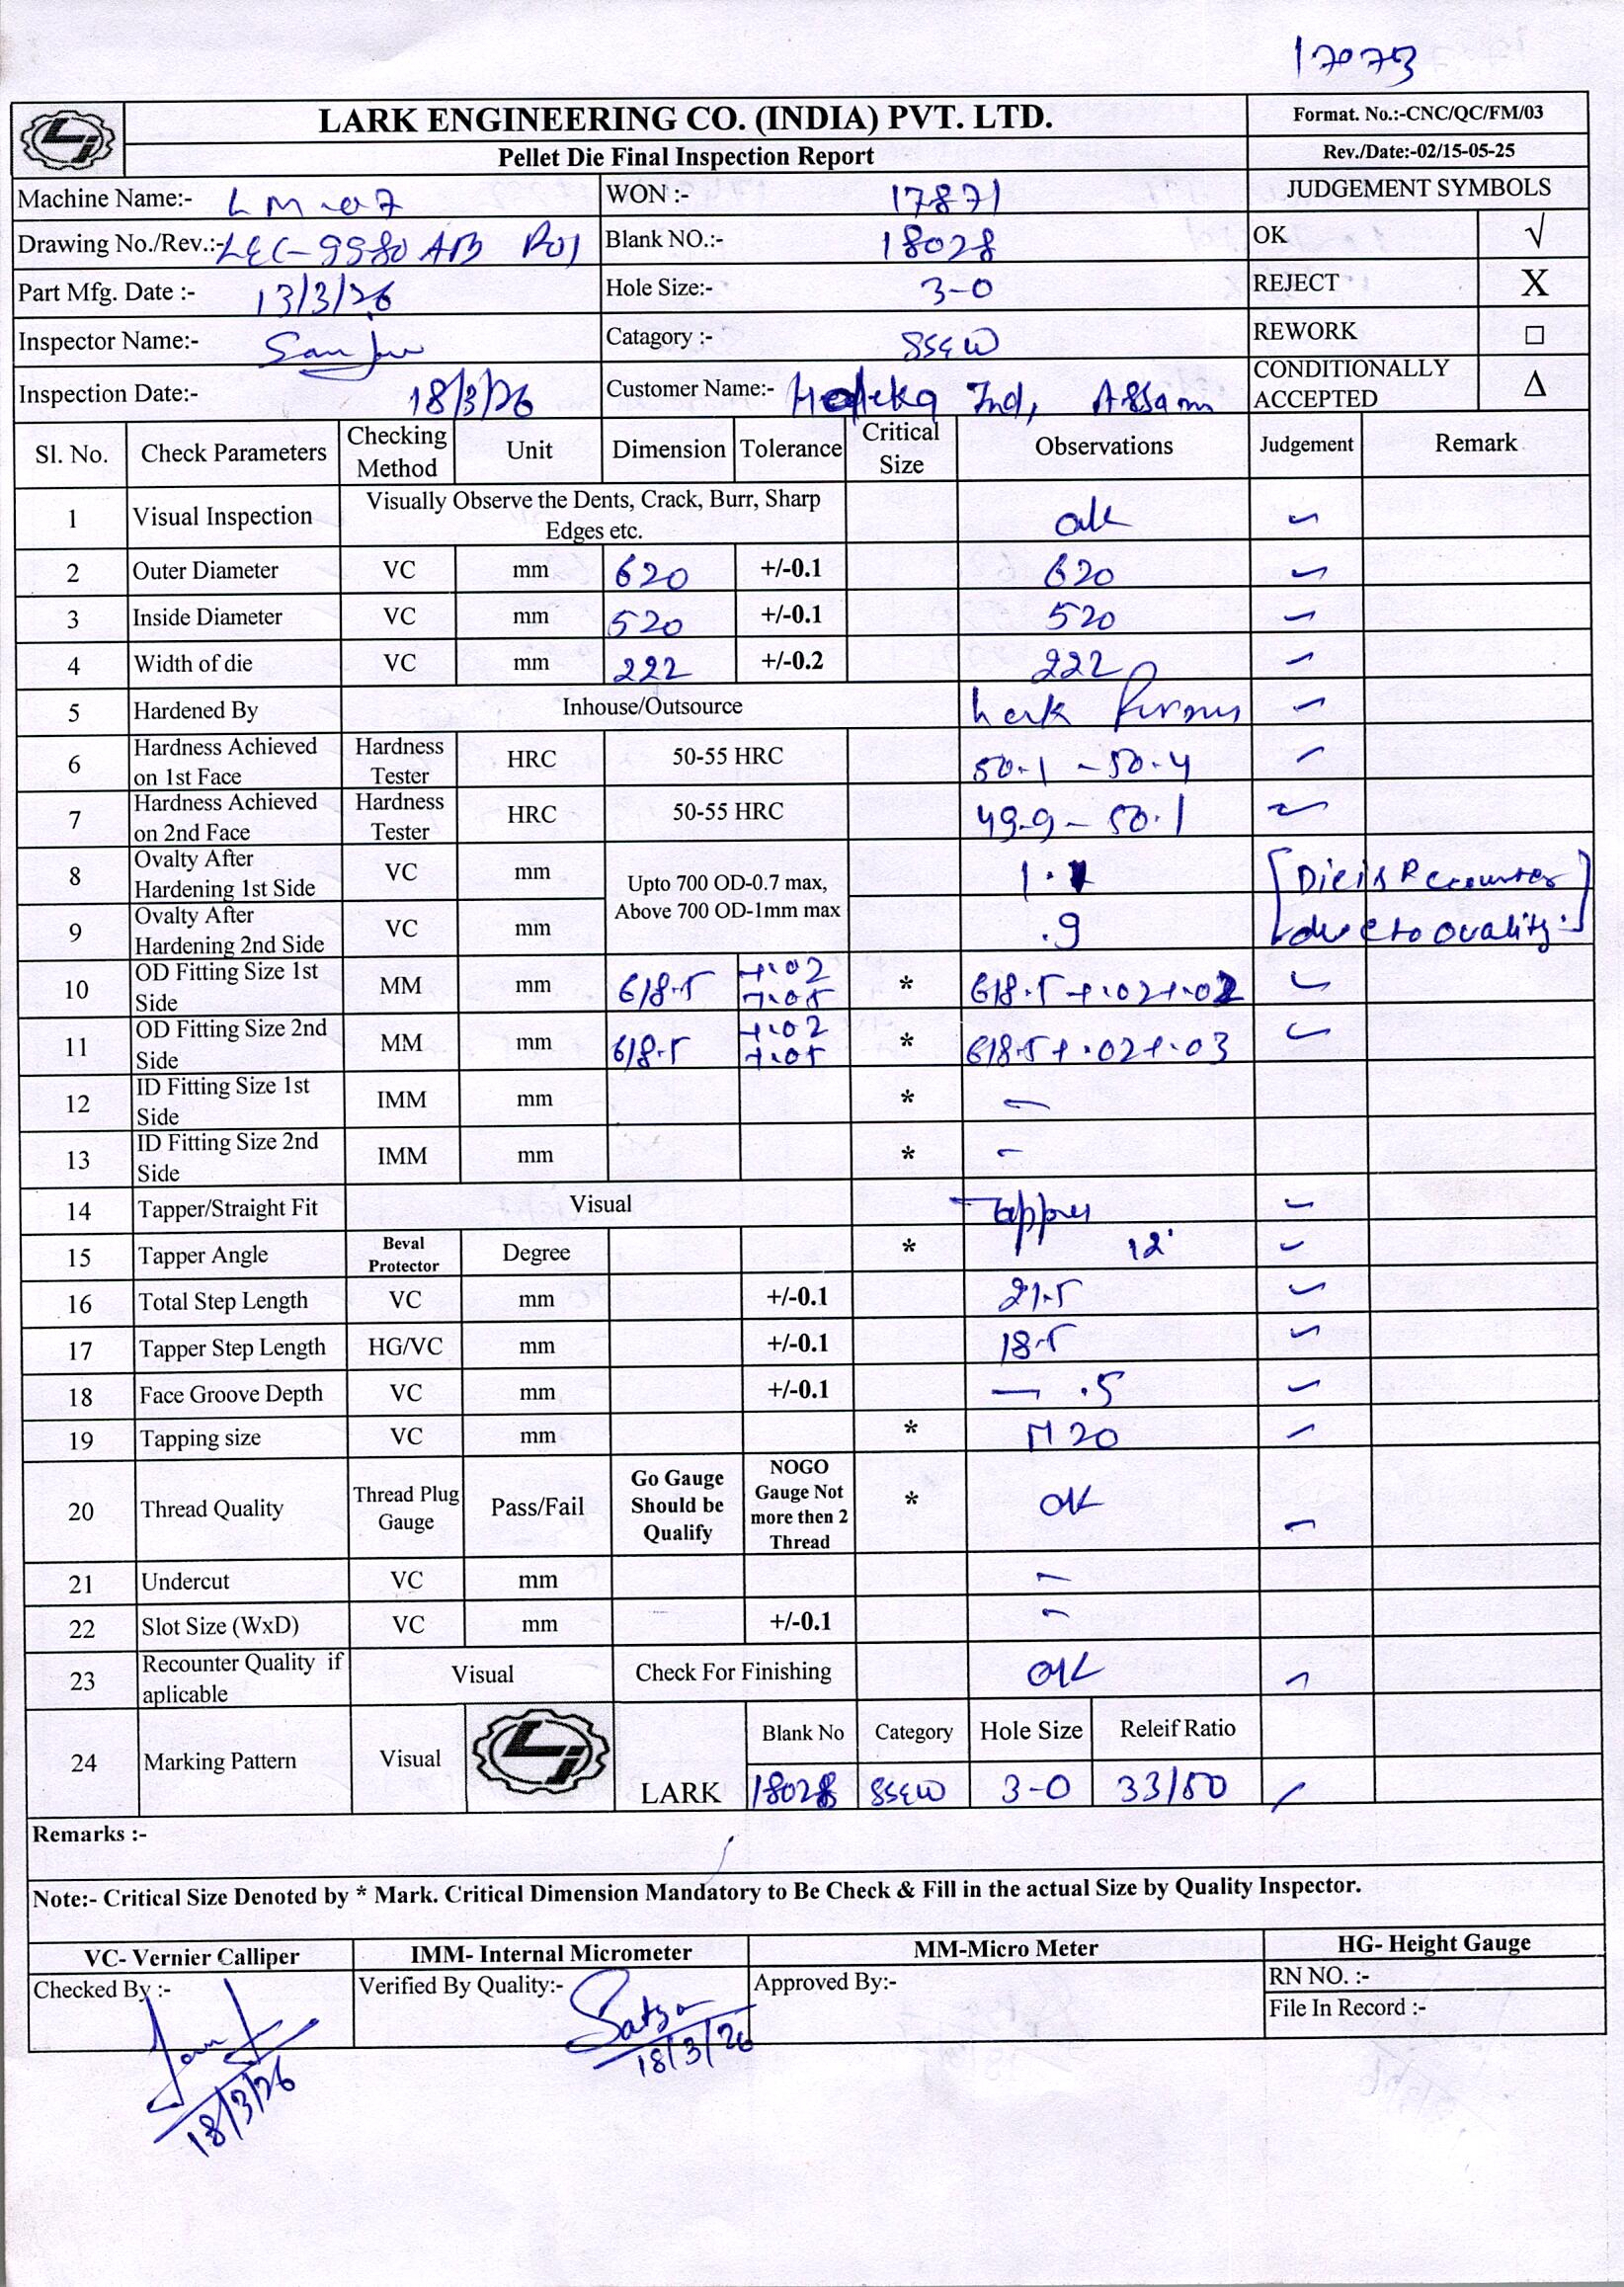 17073
LARK ENGINEERING CO. (INDIA) PVT. LTD.
Format. No.:-CNC/QC/FM/03
Pellet Die Final Inspection Report
Rev./Date:-02/15-05-25
Machine Name:- LM-07 WON :- 17871 JUDGEMENT SYMBOLS
Drawing No./Rev.:- LEC-9980 AB R01 Blank NO.:- 18028 OK √
Part Mfg. Date :- 13/3/26 Hole Size:- 3-0 REJECT X
Inspector Name:- Catagory :- SSEW REWORK □
Inspection Date:- 18/3/26 Customer Name:- Ind, Assam CONDITIONALLY ACCEPTED Δ
Sl. No. Check Parameters Checking Method Unit Dimension Tolerance Critical Size Observations Judgement Remark
1 Visual Inspection Visually Observe the Dents, Crack, Burr, Sharp Edges etc. ok
2 Outer Diameter VC mm 620 +/-0.1 620
3 Inside Diameter VC mm 520 +/-0.1 520
4 Width of die VC mm 222 +/-0.2 222
5 Hardened By Inhouse/Outsource
6 Hardness Achieved on 1st Face Hardness Tester HRC 50-55 HRC 50.1 - 50.4
7 Hardness Achieved on 2nd Face Hardness Tester HRC 50-55 HRC 49.9 - 50.1
8 Ovalty After Hardening 1st Side VC mm Upto 700 OD-0.7 max, Above 700 OD-1mm max [Die is Recounter
9 Ovalty After Hardening 2nd Side VC mm .9 due to ovality]
10 OD Fitting Size 1st Side MM mm 618.5 +.02 +.05 * 618.5 +.02 +.02
11 OD Fitting Size 2nd Side MM mm 618.5 +.02 +.05 * 618.5 +.02 +.03
12 ID Fitting Size 1st Side IMM mm * -
13 ID Fitting Size 2nd Side IMM mm * -
14 Tapper/Straight Fit Visual Tapper
15 Tapper Angle Beval Protector Degree * 12°
16 Total Step Length VC mm +/-0.1 21.5
17 Tapper Step Length HG/VC mm +/-0.1 18.5
18 Face Groove Depth VC mm +/-0.1 - .5
19 Tapping size VC mm * M20
20 Thread Quality Thread Plug Gauge Pass/Fail Go Gauge Should be Qualify NOGO Gauge Not more then 2 Thread * OK
21 Undercut VC mm -
22 Slot Size (WxD) VC mm +/-0.1 -
23 Recounter Quality if aplicable Visual Check For Finishing OK
24 Marking Pattern Visual LARK Blank No Category Hole Size Releif Ratio
18028 SSEW 3-0 33/50
Remarks :-
Note:- Critical Size Denoted by * Mark. Critical Dimension Mandatory to Be Check & Fill in the actual Size by Quality Inspector.
VC- Vernier Calliper IMM- Internal Micrometer MM-Micro Meter HG- Height Gauge
Checked By :- Verified By Quality:- Approved By:- RN NO. :-
File In Record :-
18/3/26
18/3/26